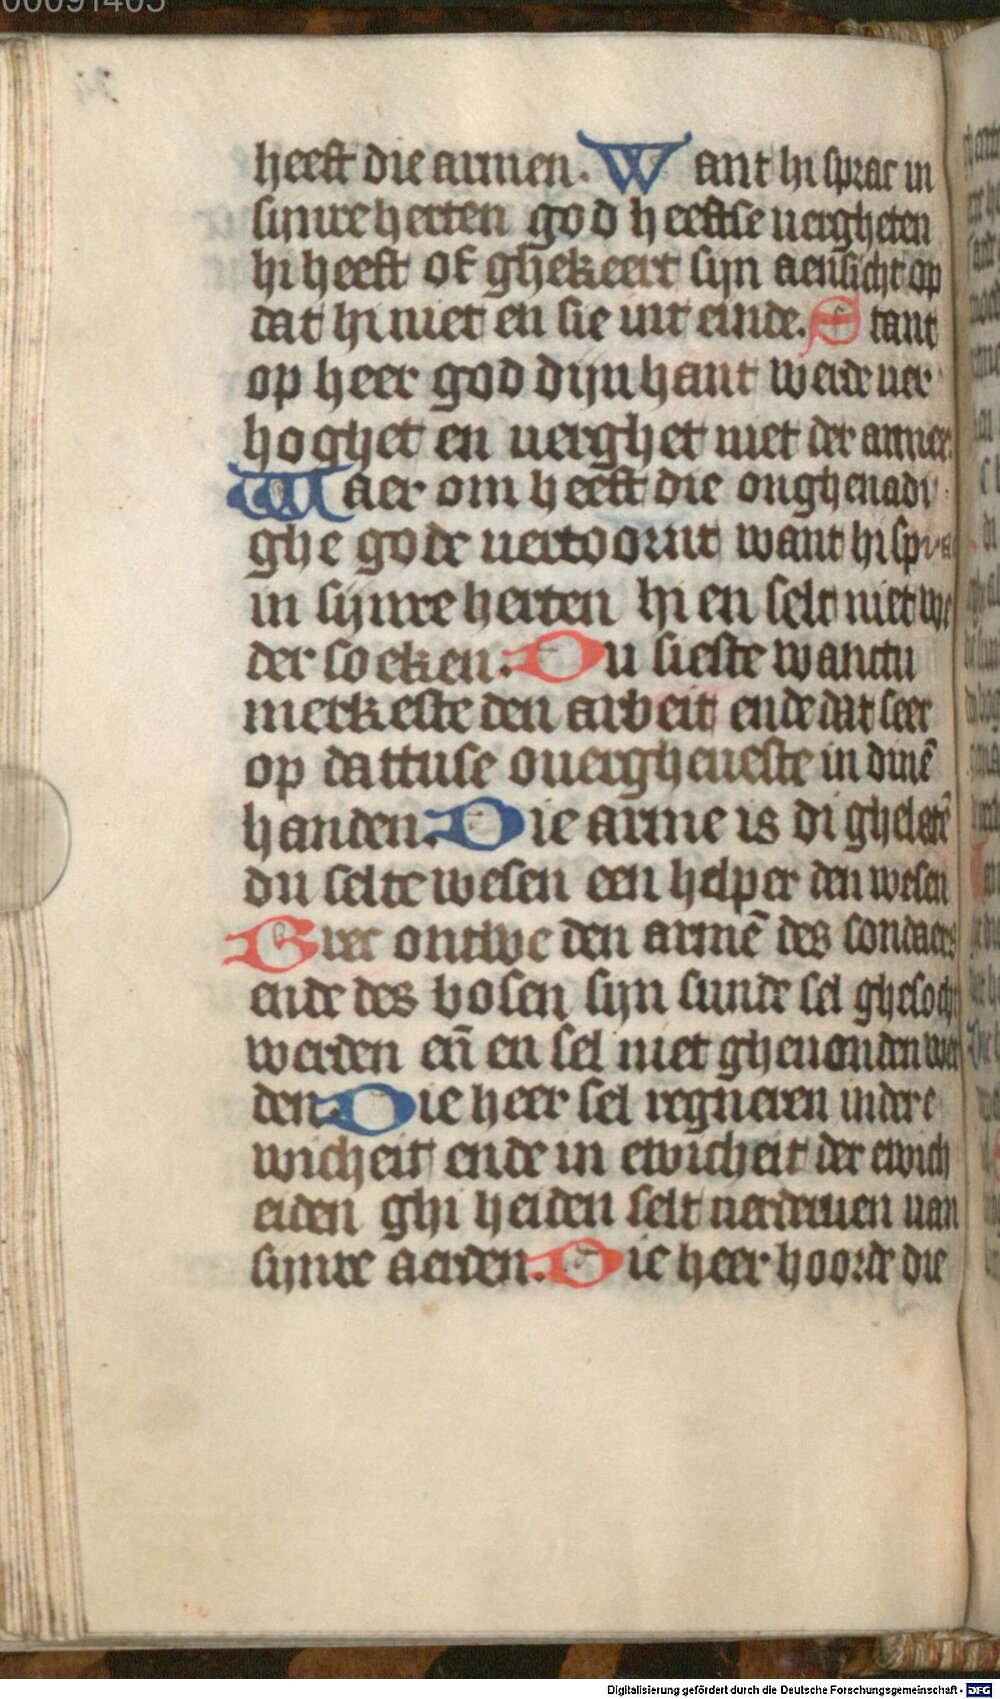 00091405
heeft die armen. Want hi sprac in
sijnre herten god heeftse uergheten
hi heeft of ghekeert sijn aensicht op
dat hi niet en sie uit einde. Stant
op heer god dijn hant werde uer
hoghet en uerghet niet der armer.
Waer om heeft die onghenadi
ghe gode uertoornt want hi sprac
in sijnre herten hi en selt niet we
der soeken. Du sieste wanttu
merkeste den arbeit ende dat seer
op dattuse ouergheueste in dinē
handen. Die arme is di ghelatē
du selte wesen een helper den wesen
Brec ontwe den armē des sondaers
ende des bosen sijn sunde sel ghesocht
werden eñ en sel niet gheuonden wer
den. Die heer sel regneren inder e
wicheit ende in ewicheit der ewich
eiden ghi heiden selt uerderuen uan
sijnre aerden. Die heer hoorde die
Digitalisierung gefördert durch die Deutsche Forschungsgemeinschaft - DFG